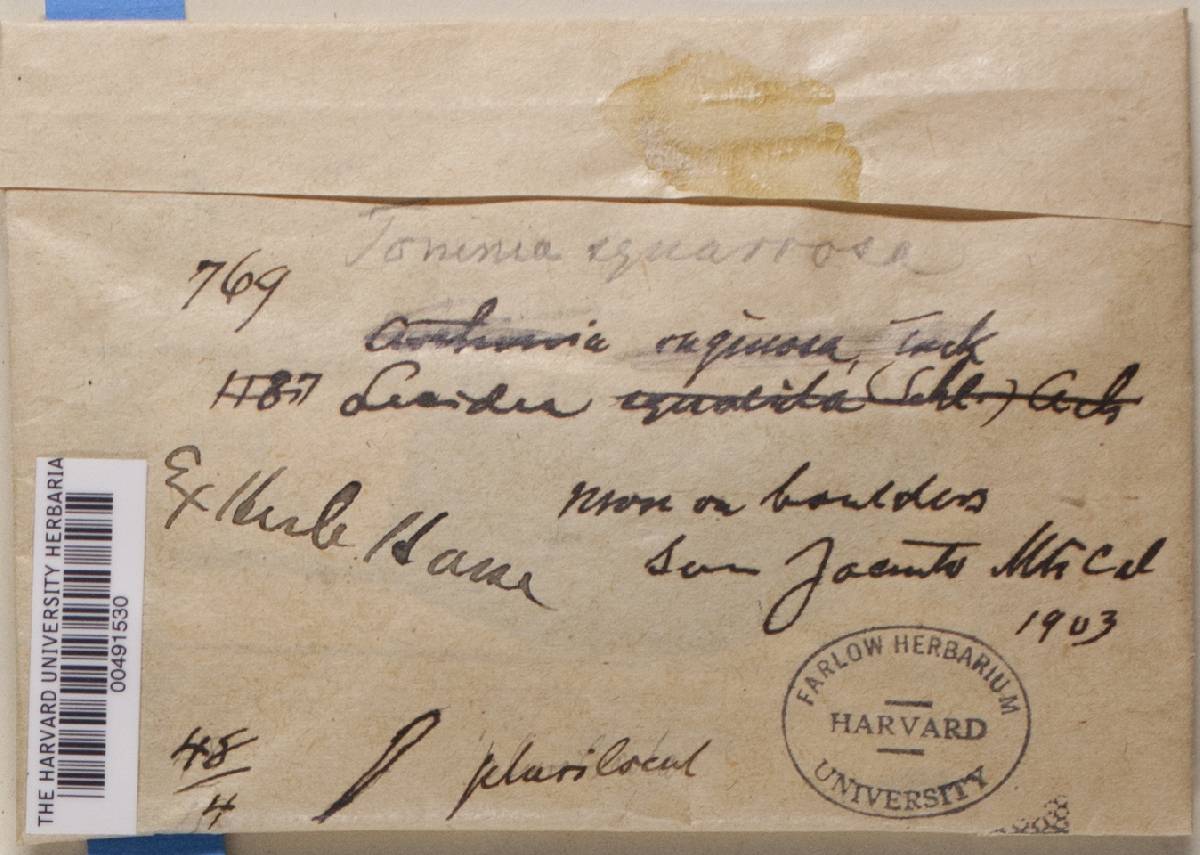 Toninia squarrosa
769
ruginosa, Tuck
1187 Lecidea squalida (Schl.) Ach
Ex Herb Hasse
Moss on boulders
San Jacinto Mts Cal
1903
48
4
plurilocul
FARLOW HERBARIUM
HARVARD
UNIVERSITY
THE HARVARD UNIVERSITY HERBARIA
00491530